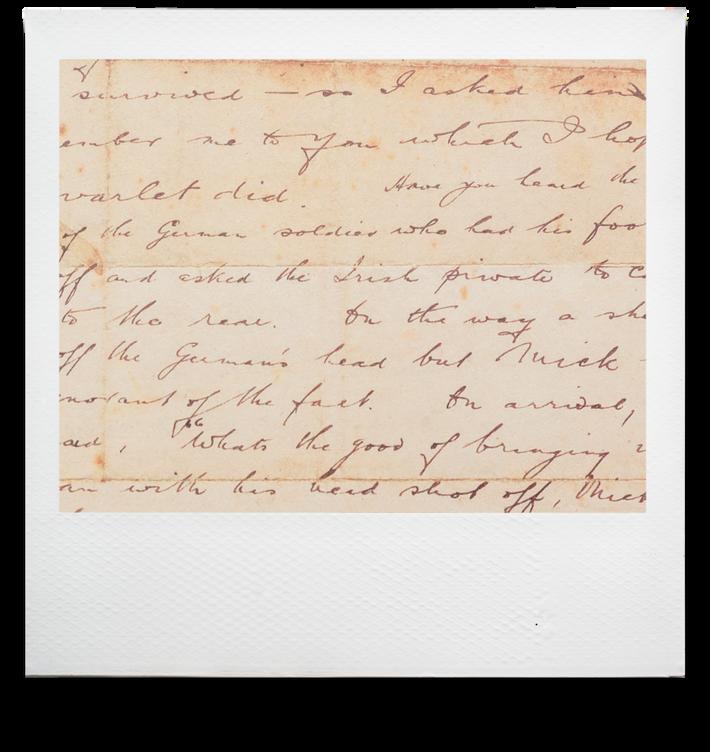 survived — so I asked him
ember me to you which I hop
varlet did. Have you heard the
of the German soldier who had his foo
off and asked the Irish private to ca
to the rear. On the way a she
off the German's head but Mick -
norant of the fact. On arrival,
aid, "Whats the good of bringing
an with his head shot off, Mick